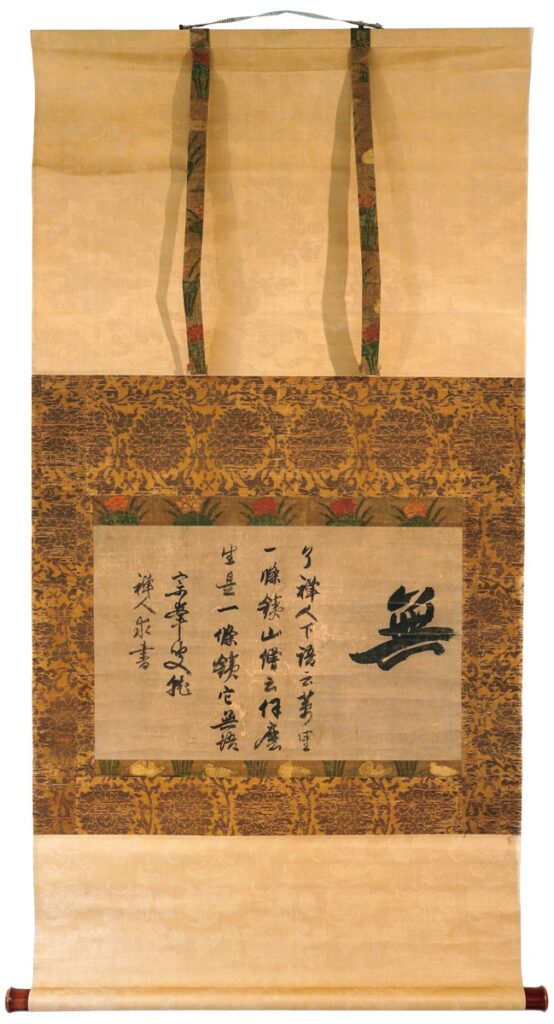 無
了禪人下語云萬里
一條鐵山僧云作麼
生是一條鐵它無語
宗峯叟
禪人求書